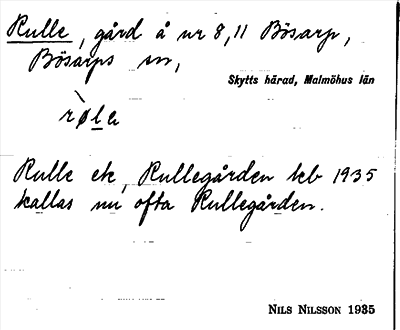 Rulle, gård å nr 8,11 Bösarp,
Bösarps sn,
Skytts härad, Malmöhus län
Rulle ek, Rullegården kb 1935
kallas nu ofta Rullegården.
NILS NILSSON 1935